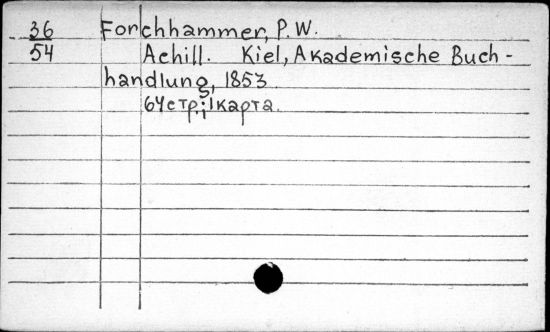 36 Forchhammer, P.W.
54 Achill. Kiel, Akademische Buch-
handlung, 1853.
64 стр.; 1 карта.